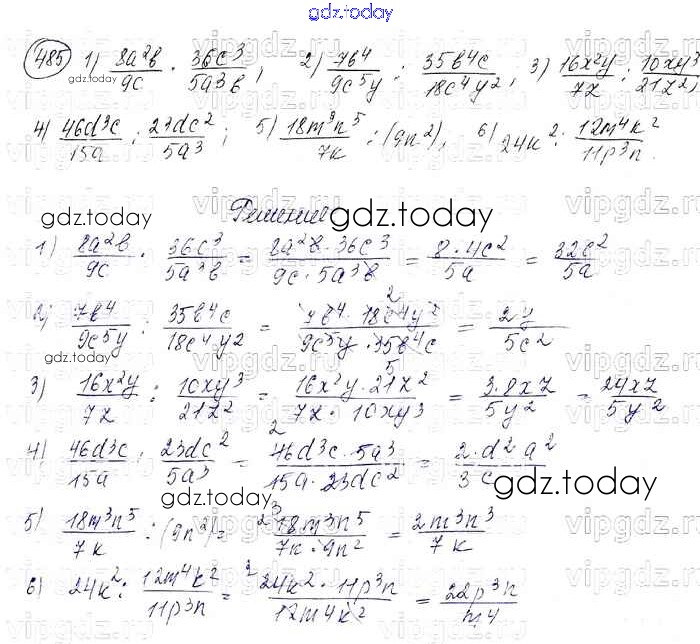 gdz.today
485 1) 8a²b/9c · 36c³/5a³b; 2) 7b⁴/9c⁵y : 35b⁴c/18c⁴y²; 3) 16x²y/7z : 10xy³/21z²;
gdz.today
4) 46d³c/15a : 23dc²/5a³; 5) 18m³n⁵/7k : (9n²), 6) 24k² : 12m⁴k²/11p³n.
gdz.today Решение gdz.today
1) 8a²b/9c · 36c³/5a³b = 8a²b·36c³/9c·5a³b = 8·4c²/5a = 32c²/5a
2) 7b⁴/9c⁵y : 35b⁴c/18c⁴y² = 7b⁴·18c⁴y²/9c⁵y·35b⁴c = 2y/5c²
gdz.today
3) 16x²y/7z : 10xy³/21z² = 16x²y·21z²/7z·10xy³ = 3·8xz/5y² = 24xz/5y²
4) 46d³c/15a : 23dc²/5a³ = 46d³c·5a³/15a·23dc² = 2·d²a²/3c
gdz.today gdz.today
5) 18m³n⁵/7k : (9n²) = 18m³n⁵/7k·9n² = 2m³n³/7k
6) 24k² : 12m⁴k²/11p³n = 24k²·11p³n/12m⁴k² = 22p³n/m⁴